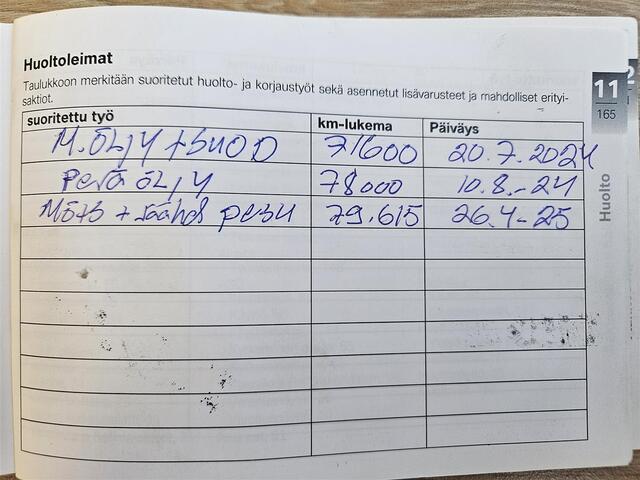 Huoltoleimat
Taulukkoon merkitään suoritetut huolto- ja korjaustyöt sekä asennetut lisävarusteet ja mahdolliset erityi-
saktiot.
suoritettu työ km-lukema Päiväys
M.ÖLJY + SUOD 71600 20.7.2024
PERÄ ÖLJY 78000 10.8.-24
+ PESU 79.615 26.4-25
11
165
Huolto
2